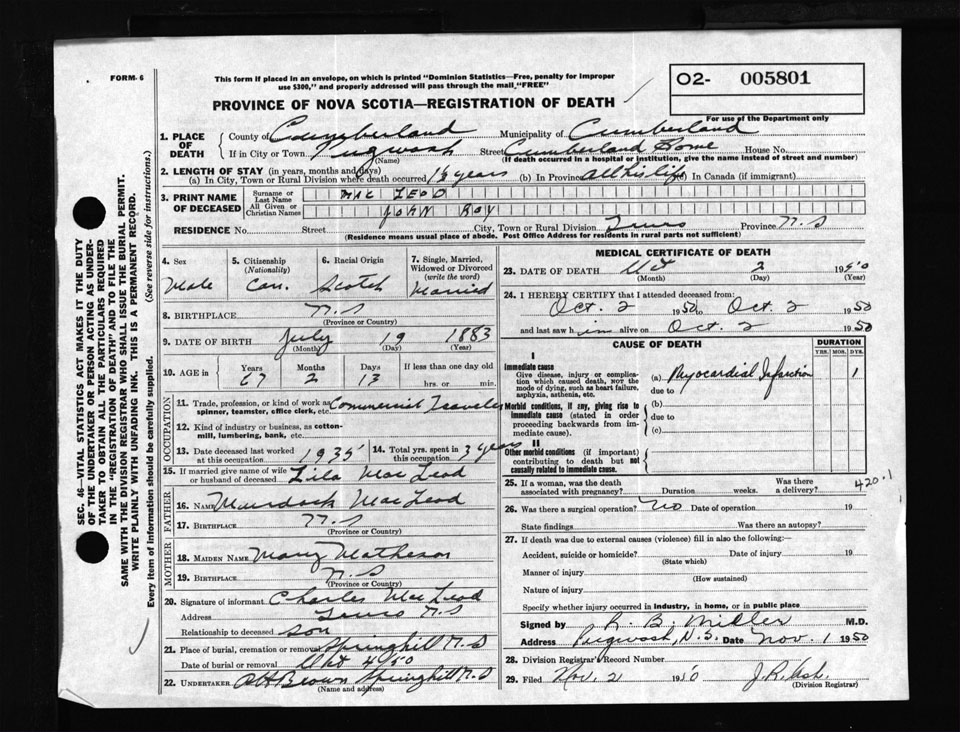 FORM 6
This form if placed in an envelope, on which is printed "Dominion Statistics—Free, penalty for improper
use $300," and properly addressed will pass through the mail, "FREE"
PROVINCE OF NOVA SCOTIA—REGISTRATION OF DEATH
O2- 005801
For use of the Department only
1. PLACE OF DEATH
County of Cumberland Municipality of Cumberland
If in City or Town Pugwash Street Cumberland Home House No.
(Name) (If death occurred in a hospital or institution, give the name instead of street and number)
2. LENGTH OF STAY (in years, months and days)
(a) In City, Town or Rural Division where death occurred years (b) In Province All his life (c) In Canada (if immigrant)
3. PRINT NAME OF DECEASED
Surname or Last Name MAC LEOD
All Given or Christian Names JOHN ROY
RESIDENCE No. Street City, Town or Rural Division Truro Province N.S
(Residence means usual place of abode. Post Office Address for residents in rural parts not sufficient)
4. Sex Male
5. Citizenship (Nationality) Can.
6. Racial Origin Scotch
7. Single, Married, Widowed or Divorced (write the word) Married
8. BIRTHPLACE N.S
(Province or Country)
9. DATE OF BIRTH July 19 1883
(Month) (Day) (Year)
10. AGE in Years 67 Months 2 Days 13 If less than one day old hrs. or min.
OCCUPATION
11. Trade, profession, or kind of work as spinner, teamster, office clerk, etc. Commercial Traveler
12. Kind of industry or business, as cotton-mill, lumbering, bank, etc.
13. Date deceased last worked at this occupation 1935
14. Total yrs. spent in this occupation 3 years
15. If married give name of wife or husband of deceased Lila Mac Leod
FATHER
16. NAME Murdock Mac Leod
17. BIRTHPLACE N.S
(Province or Country)
MOTHER
18. MAIDEN NAME Mary Matheson
19. BIRTHPLACE N.S
(Province or Country)
20. Signature of informant Charles Mac Leod
Address Truro N.S
Relationship to deceased son
21. Place of burial, cremation or removal Springhill N.S
Date of burial or removal Okt 4 50
22. UNDERTAKER AH Brown Springhill N.S
(Name and address)
MEDICAL CERTIFICATE OF DEATH
23. DATE OF DEATH 2 1950
(Month) (Day) (Year)
24. I HEREBY CERTIFY that I attended deceased from:
Oct. 2 1950 to Oct 2 1950
and last saw him alive on Oct 2 1950
CAUSE OF DEATH
DURATION
YRS. MOS. DYS.
I
Immediate cause
Give disease, injury or complication which caused death, NOT the mode of dying, such as heart failure, asphyxia, asthenia, etc.
(a) Myocardial Infarction 1
due to
Morbid conditions, if any, giving rise to immediate cause (stated in order proceeding backwards from immediate cause).
(b)
due to
(c)
II
Other morbid conditions (if important) contributing to death but not causally related to immediate cause.
25. If a woman, was the death associated with pregnancy? Duration weeks. Was there a delivery?
420.1
26. Was there a surgical operation? No Date of operation 19
State findings Was there an autopsy?
27. If death was due to external causes (violence) fill in also the following:—
Accident, suicide or homicide? Date of injury 19
(State which)
Manner of injury
(How sustained)
Nature of injury
Specify whether injury occurred in industry, in home, or in public place
Signed by R. B. Miller M.D.
Address Pugwash, N.S. Date Nov. 1 1950
28. Division Registrar's Record Number
29. Filed Nov. 2 1950 J.R. Ash.
(Division Registrar)
SEC. 46—VITAL STATISTICS ACT MAKES IT THE DUTY
OF THE UNDERTAKER OR PERSON ACTING AS UNDER-
TAKER TO OBTAIN ALL THE PARTICULARS REQUIRED
IN THE "REGISTRATION OF DEATH" AND TO FILE THE
SAME WITH THE DIVISION REGISTRAR WHO SHALL ISSUE THE BURIAL PERMIT.
WRITE PLAINLY WITH UNFADING INK. THIS IS A PERMANENT RECORD.
Every item of information should be carefully supplied. (See reverse side for instructions.)